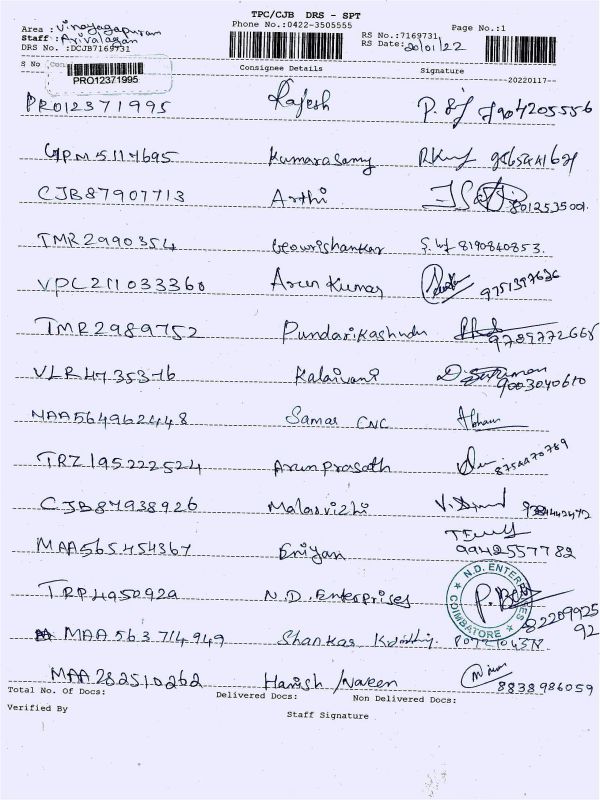 TPC/CJB DRS - SPT
Phone No.:0422-3505555
Page No.:1
Area : Vinayagapuram
Staff: Arivalagan
DRS No. :DCJB7169731
RS No.:7169731
RS Date: 20/01/22
S No Con
Consignee Details
Signature
PRO12371995
--20220117--
PRO12371995 Rajesh
Kumarasamy
CJB87907713 Arthi 8012535001
TMR2990354 Gowrishankar 8190840853
VPC211033360 Arun Kumar 9751397636
TMR2989752
VLR4735376 Kalaivani 9003040610
MAA564962448 Samar CNC
TRZ195222524 Arunprasath 8754470789
CJB87938926 Malarvizhi
MAA565454367 Eniyan 9942557782
TRP4950929 N.D. Enterprises
N.D. ENTERPRISES COIMBATORE
8220992592
MAA563714949 Shankar
MAA282510262 Harish /Naveen 8838986059
Total No. Of Docs: Delivered Docs: Non Delivered Docs:
Verified By
Staff Signature